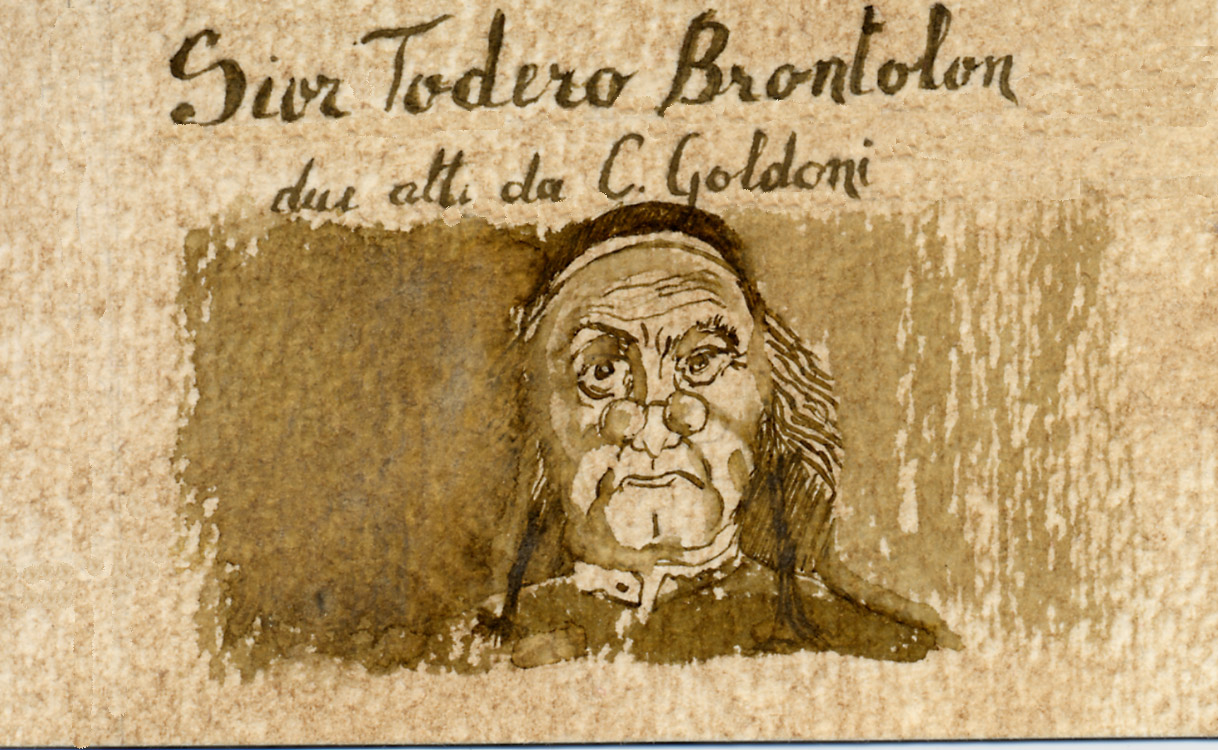 Sior Todero Brontolon
due atti da C. Goldoni